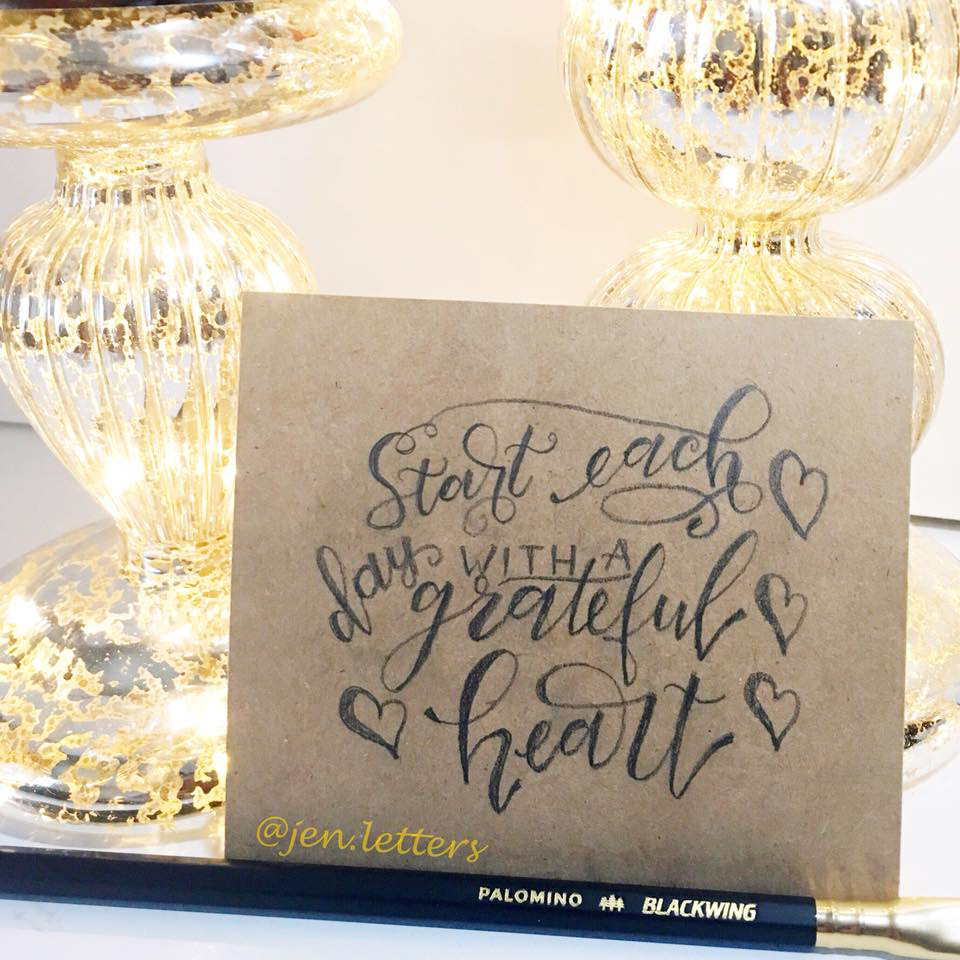 Start each
day WITH A
grateful
heart
@jen.letters
PALOMINO BLACKWING